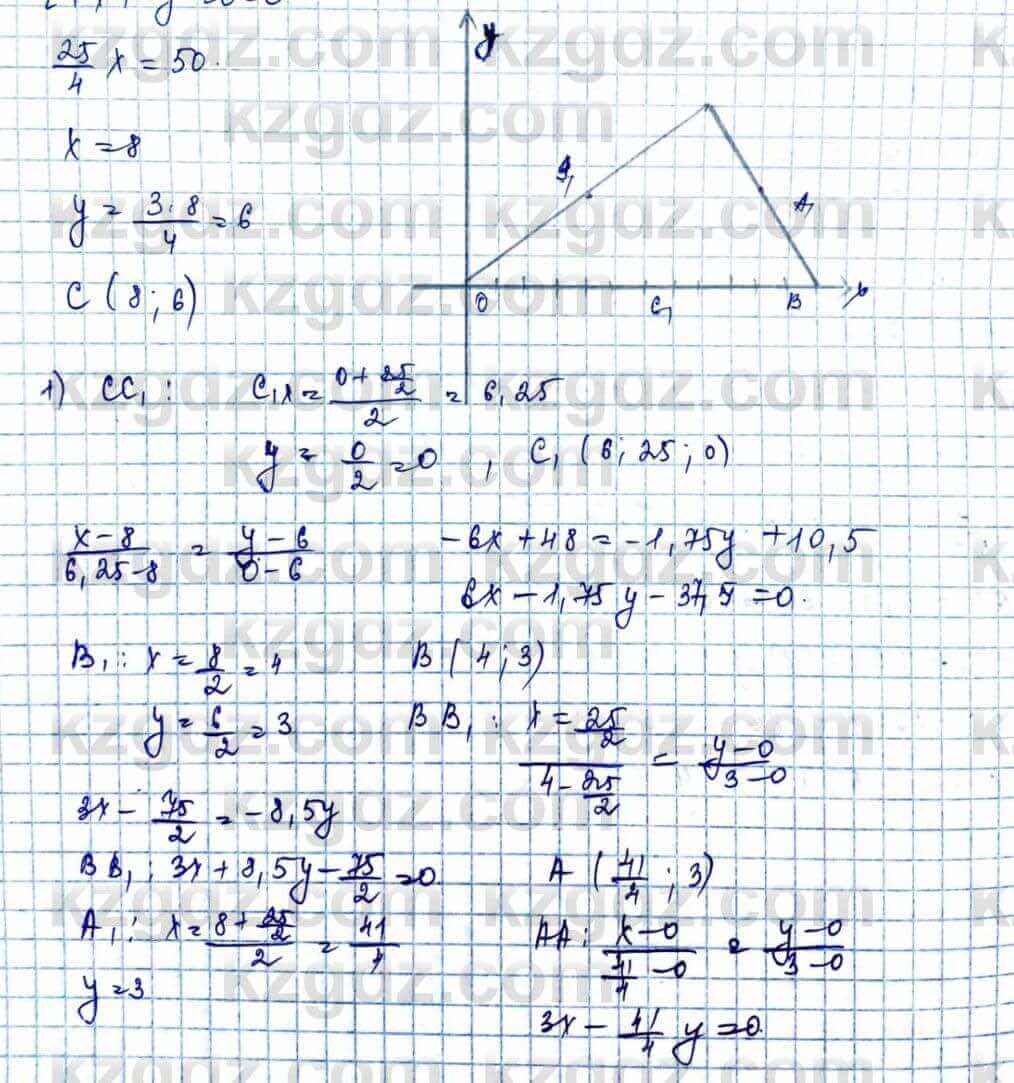 25/4 x = 50.
x = 8
y = 3·8/4 = 6
C (8; 6)
y
B₁
A₁
O C₁ B x
1) CC₁: C₁x = (0 + 25/2)/2 = 6,25
y = 0/2 = 0, C₁ (6;25;0)
(x-8)/(6,25-8) = (y-6)/(0-6) -6x+48 = -1,75y + 10,5
6x - 1,75y - 37,5 = 0.
B₁: x = 8/2 = 4 B (4; 3)
y = 6/2 = 3 BB₁: (x = 25/2)/(4 - 25/2) = (y-0)/(3-0)
3x - 75/2 = -8,5y
BB₁: 3x + 8,5y - 75/2 = 0. A (41/4; 3)
A₁: x = (8 + 25/2)/2 = 41/4 AA: (x-0)/(41/4 - 0) = (y-0)/(3-0)
y = 3
3x - 41/4 y = 0.
kzgdz.com